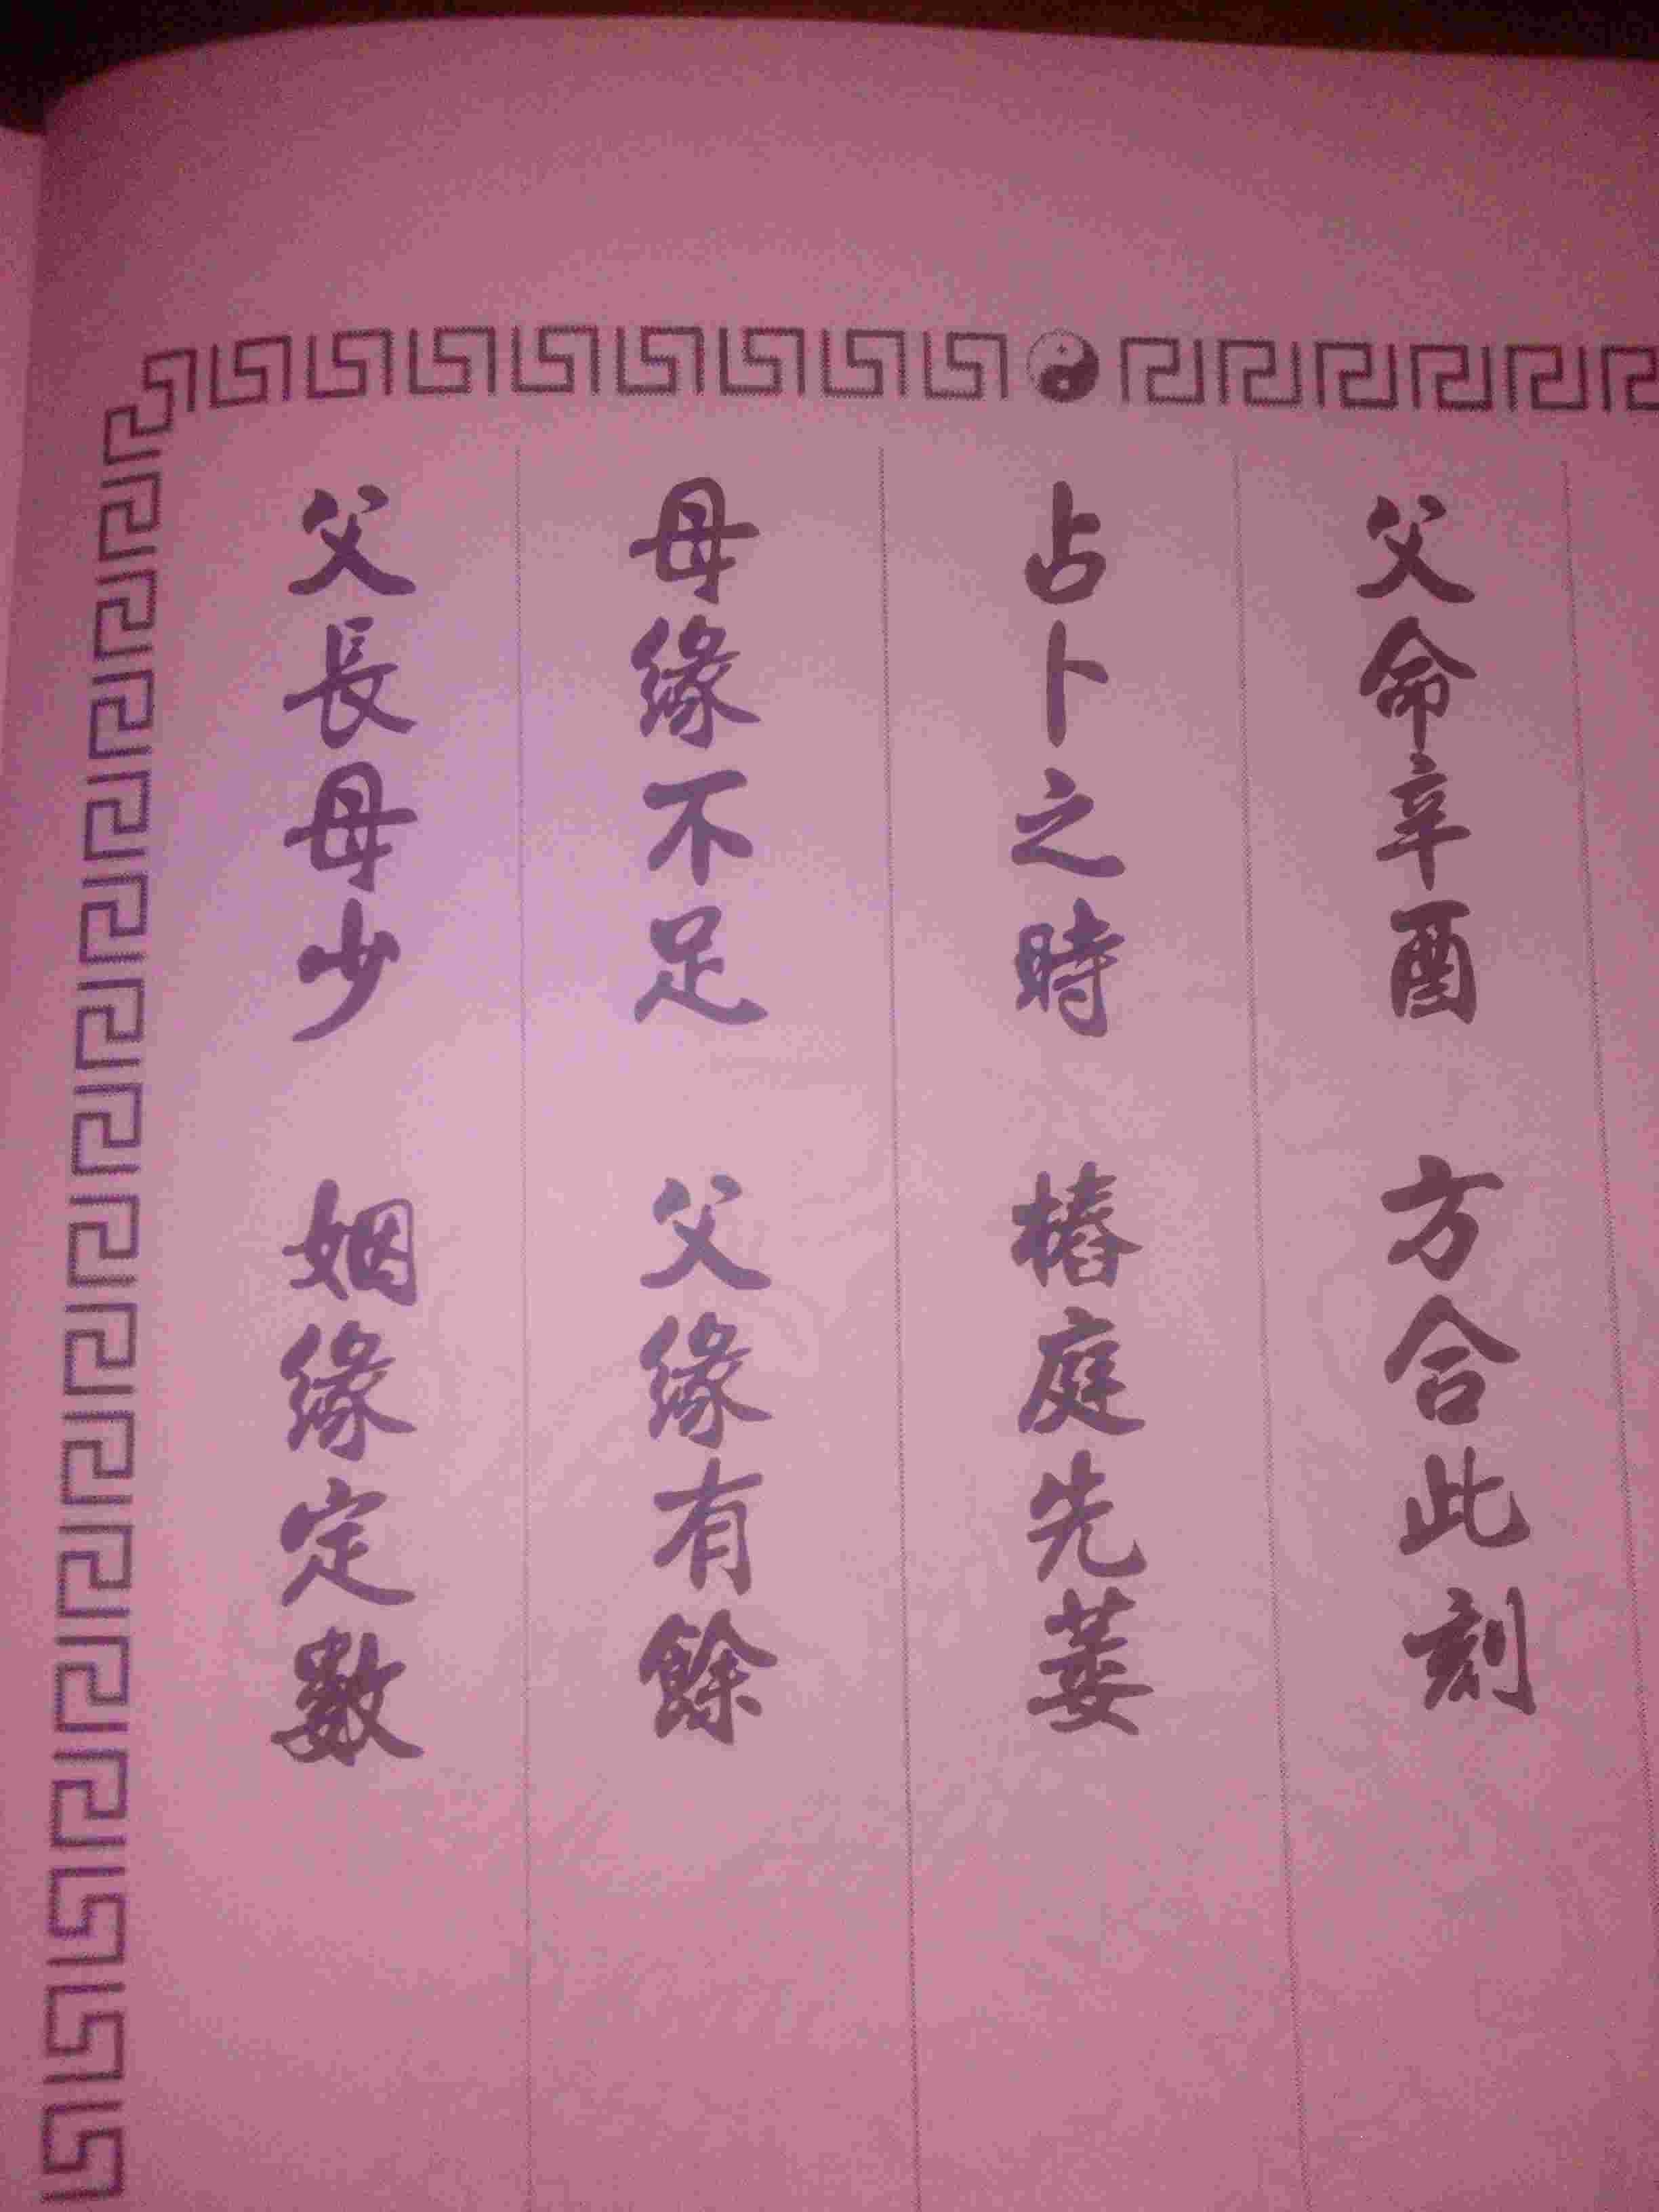 父命辛酉 方合此刻
占卜之時 椿庭先萎
母緣不足 父緣有餘
父長母少 姻緣定數